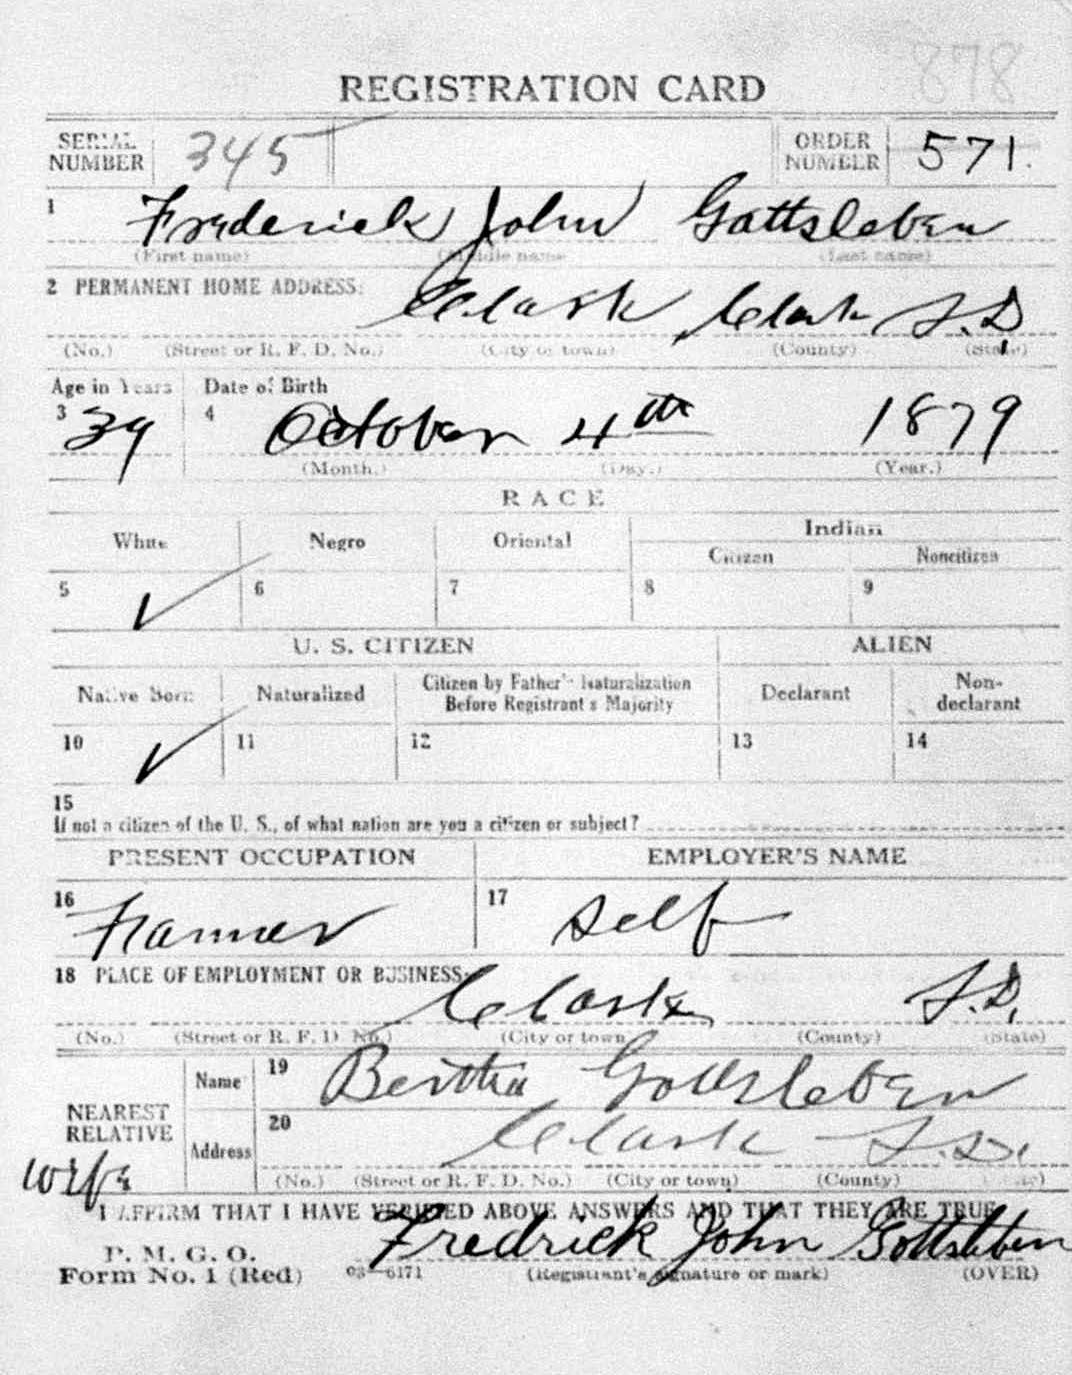 878
REGISTRATION CARD
SERIAL NUMBER 345 ORDER NUMBER 571.
1 Frederick John Gottsleben
(First name) (Middle name) (Last name)
2 PERMANENT HOME ADDRESS:
Clark, Clark S.D.
(No.) (Street or R. F. D. No.) (City or town) (County) (State)
Age in Years Date of Birth
3 39 4 October 4th 1879
(Month.) (Day.) (Year.)
RACE
White Negro Oriental Indian
Citizen Noncitizen
5 ✓ 6 7 8 9
U. S. CITIZEN ALIEN
Native Born Naturalized Citizen by Father's Naturalization Before Registrant's Majority Declarant Non-declarant
10 ✓ 11 12 13 14
15
If not a citizen of the U. S., of what nation are you a citizen or subject?
PRESENT OCCUPATION EMPLOYER'S NAME
16 Farmer 17 self
18 PLACE OF EMPLOYMENT OR BUSINESS:
Clark S.D.
(No.) (Street or R. F. D. No.) (City or town) (County) (State)
NEAREST RELATIVE
wife
Name 19 Bertha Gottsleben
Address 20 Clark S.D.
(No.) (Street or R. F. D. No.) (City or town) (County) (State)
I AFFIRM THAT I HAVE VERIFIED ABOVE ANSWERS AND THAT THEY ARE TRUE
P. M. G. O.
Form No. 1 (Red) 03—6171
Fredrick John Gottsleben
(Registrant's signature or mark) (OVER)